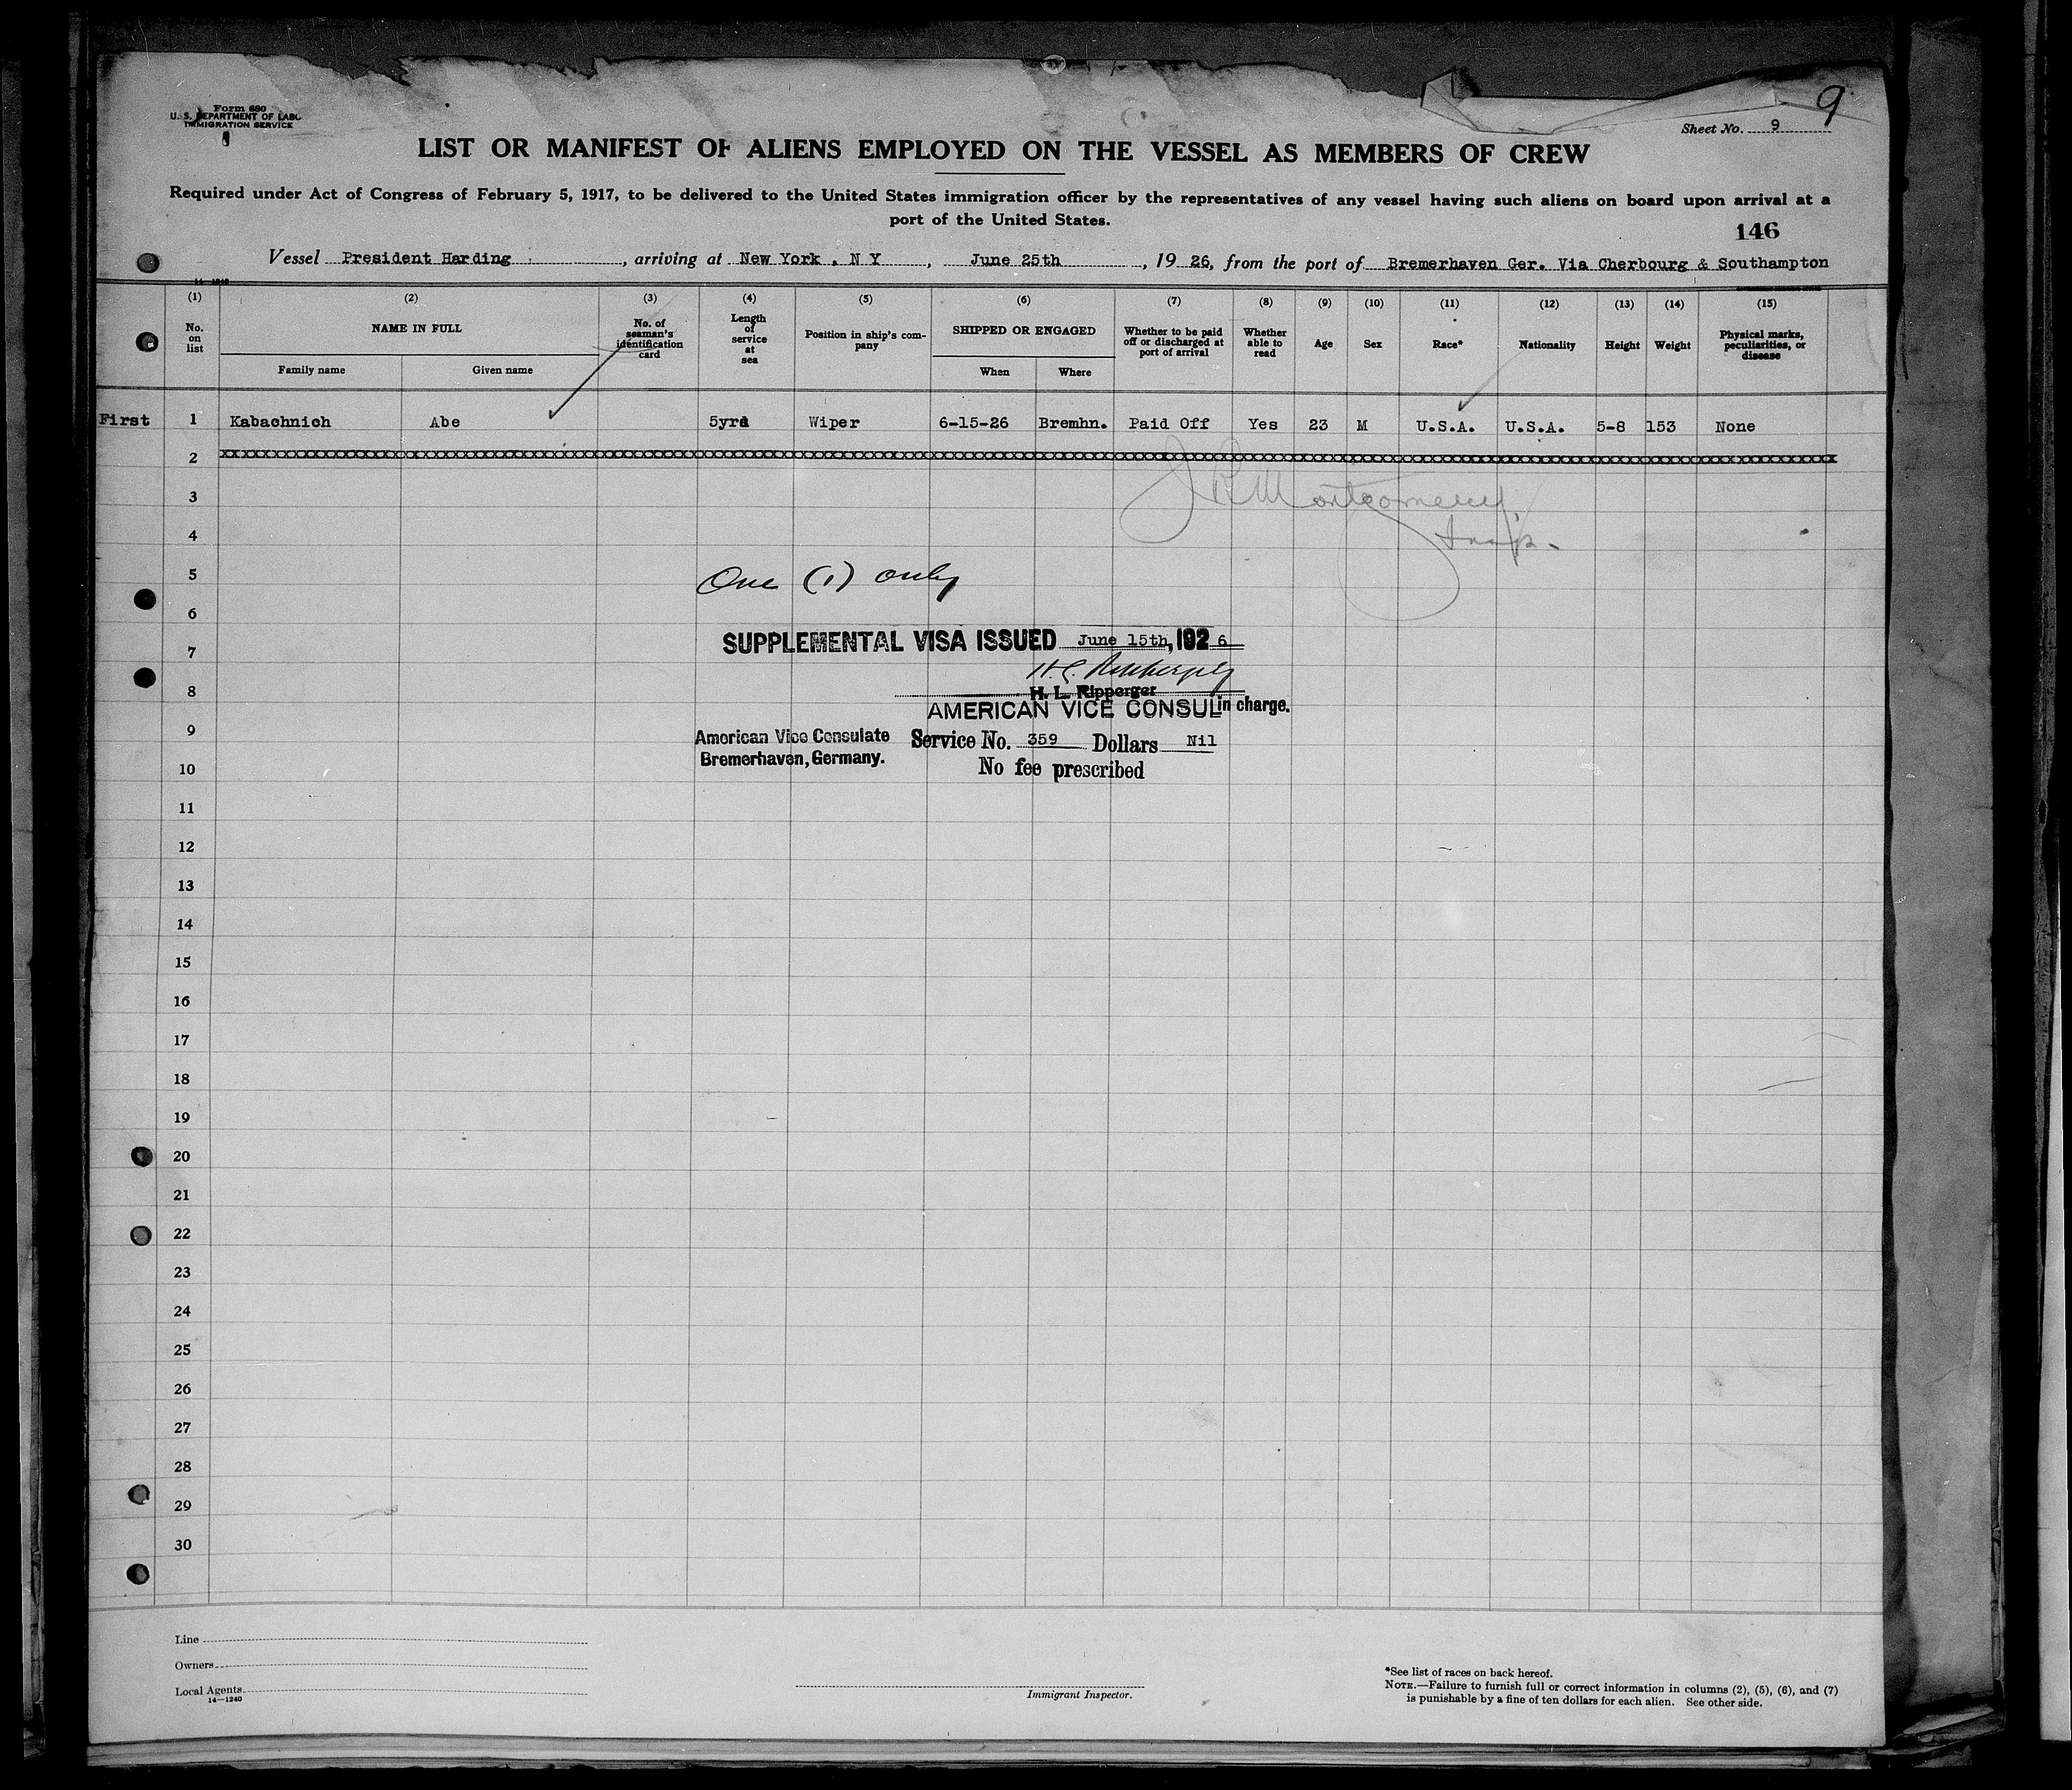 Form 680
U. S. DEPARTMENT OF LABO
IMMIGRATION SERVICE
9
Sheet No. 9
LIST OR MANIFEST OF ALIENS EMPLOYED ON THE VESSEL AS MEMBERS OF CREW
Required under Act of Congress of February 5, 1917, to be delivered to the United States immigration officer by the representatives of any vessel having such aliens on board upon arrival at a
port of the United States.
146
Vessel President Harding, arriving at New York, N Y, June 25th, 19 26, from the port of Bremerhaven Ger. Via Cherbourg & Southampton
14—1240
(1) (2) (3) (4) (5) (6) (7) (8) (9) (10) (11) (12) (13) (14) (15)
No. on list
NAME IN FULL
Family name
Given name
No. of seaman's identification card
Length of service at sea
Position in ship's company
SHIPPED OR ENGAGED
When
Where
Whether to be paid off or discharged at port of arrival
Whether able to read
Age
Sex
Race*
Nationality
Height
Weight
Physical marks, peculiarities, or disease
First 1 Kabachnich Abe 5yrs Wiper 6-15-26 Bremhn. Paid Off Yes 23 M U.S.A. U.S.A. 5-8 153 None
2
3
J R Montgomery
4
Insp.
5
One (1) only
6
7
SUPPLEMENTAL VISA ISSUED June 15th, 1926
8
H. L. Ripperger
H. L. Ripperger
AMERICAN VICE CONSUL in charge.
9
American Vice Consulate Service No. 359 Dollars Nil
Bremerhaven, Germany.
10
No fee prescribed
11
12
13
14
15
16
17
18
19
20
21
22
23
24
25
26
27
28
29
30
Line
Owners
Local Agents
14—1240
Immigrant Inspector.
*See list of races on back hereof.
NOTE.—Failure to furnish full or correct information in columns (2), (5), (6), and (7)
is punishable by a fine of ten dollars for each alien. See other side.